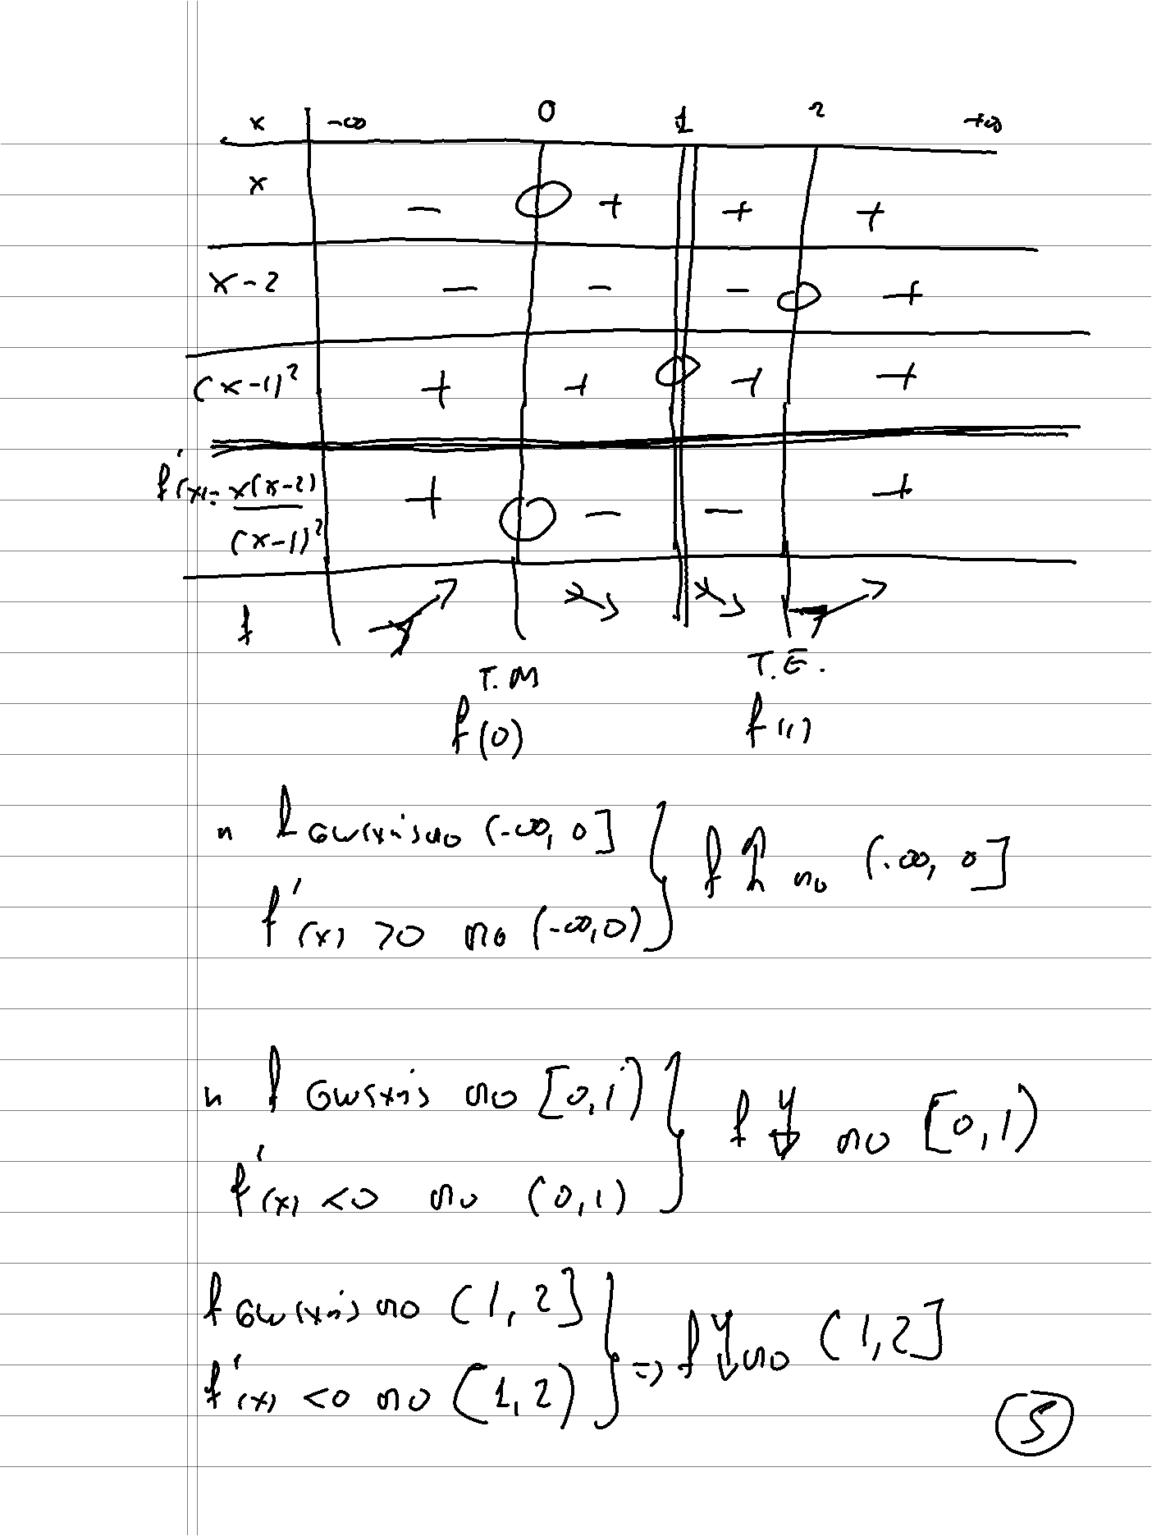 x -∞ 0 1 2 +∞
x - + + +
x-2 - - - +
(x-1)² + + + +
f'(x)= x(x-2) / (x-1)² + - - +
f ↗ ↘ ↘ ↗
T.M T.E.
f(0) f(1)
η f συνεχής στο (-∞, 0] } f ↑ στο (-∞, 0]
f'(x) >0 στο (-∞,0)
η f συνεχής στο [0,1) } f ↓ στο [0,1)
f'(x) <0 στο (0,1)
f συνεχής στο (1,2] } => f ↓ στο (1,2]
f'(x) <0 στο (1,2)
5